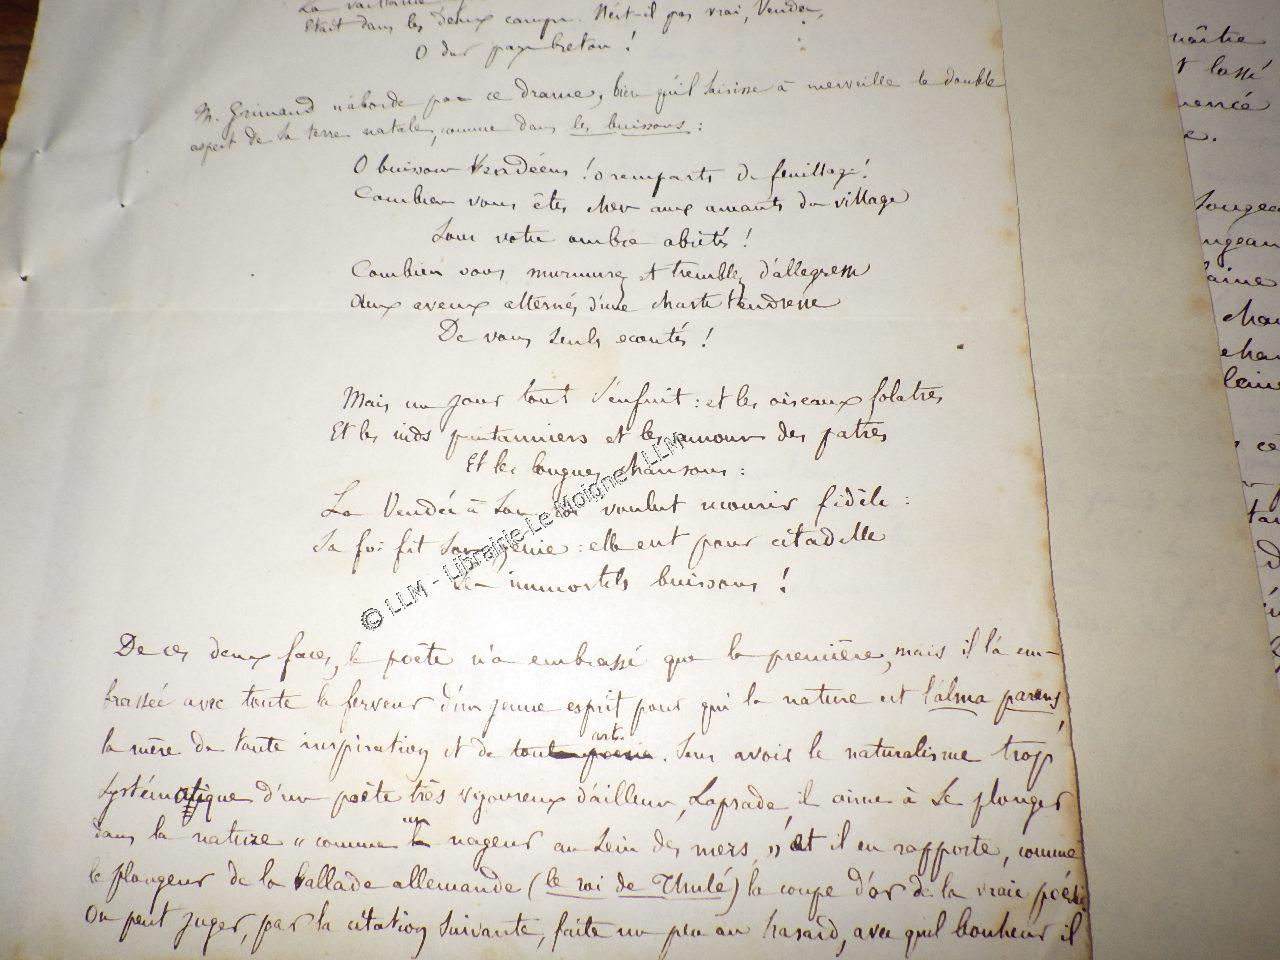 La vaillance
Etait dans les deux camps. N'est-il pas vrai, Vendée,
O dur pays breton !
M. Grimaud n'aborde pas ce drame, bien qu'il saisisse à merveille le double
aspect de sa terre natale, comme dans les buissons :
O buissons Vendéens ! ô remparts de feuillage !
Combien vous êtes chers aux amants du village
Sous votre ombre abrités !
Combien vous murmurez et tremblez d'allégresse
Aux aveux alternés d'une chaste tendresse
De vous seuls écoutés !
Mais un jour tout s'enfuit : et les oiseaux folatres
Et les nids printanniers et les amours des patres
Et les longues chansons :
La Vendée à son voulut mourir fidèle :
Sa foi fit son génie : elle eut pour citadelle
immortels buissons !
De ces deux faces, le poète n'a embrassé que la première, mais il l'a em-
brassée avec toute la ferveur d'un jeune esprit pour qui la nature est l'alma parens,
la mère de toute inspiration et de toute poésie art. Sans avoir le naturalisme trop
systématique d'un poète très vigoureux d'ailleurs, Laprade, il aime à se plonger
dans la nature « comme un nageur au sein des mers » et il en rapporte, comme
le plongeur de la ballade allemande (le roi de Thulé) la coupe d'or de la vraie poésie
On peut juger, par la citation suivante, faite un peu au hasard, avec quel bonheur il
naître
lassé
mencé
e.
songea
ngean
laine
cha
cha
laine
© LLM - Librairie Le Moigne - LLM